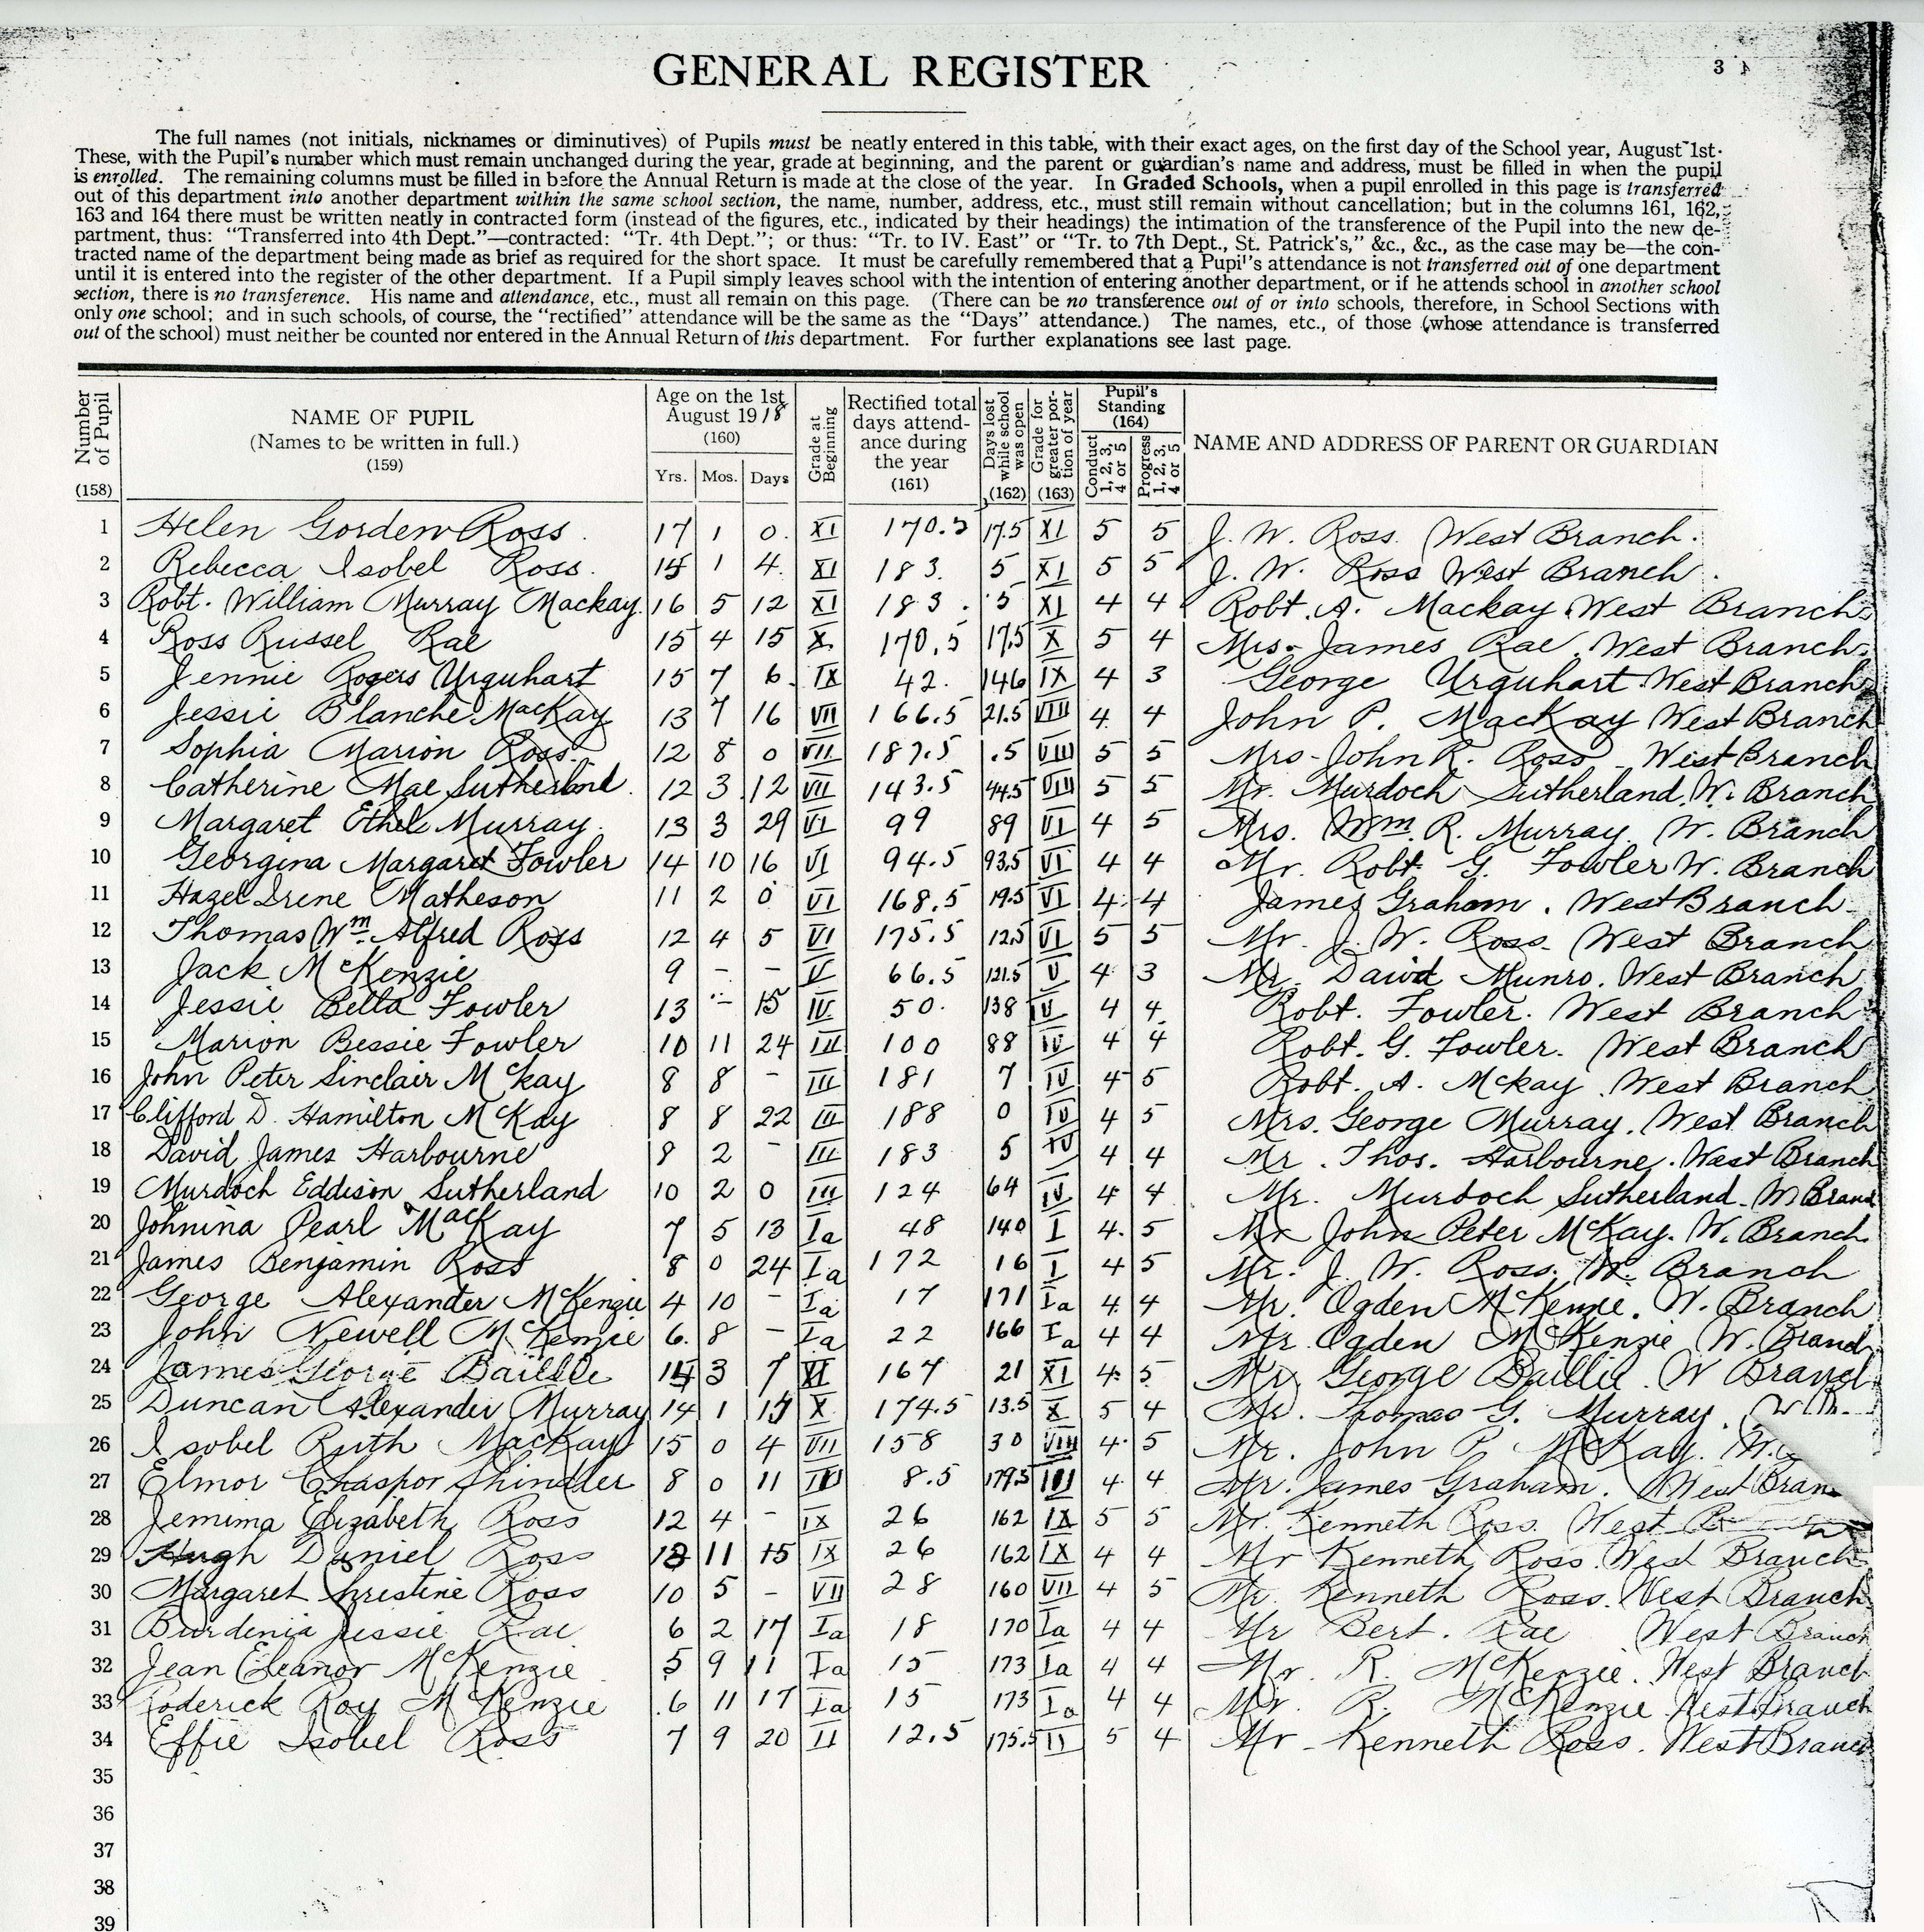 GENERAL REGISTER
3
The full names (not initials, nicknames or diminutives) of Pupils must be neatly entered in this table, with their exact ages, on the first day of the School year, August 1st.
These, with the Pupil's number which must remain unchanged during the year, grade at beginning, and the parent or guardian's name and address, must be filled in when the pupil
is enrolled. The remaining columns must be filled in before the Annual Return is made at the close of the year. In Graded Schools, when a pupil enrolled in this page is transferred
out of this department into another department within the same school section, the name, number, address, etc., must still remain without cancellation; but in the columns 161, 162,
163 and 164 there must be written neatly in contracted form (instead of the figures, etc., indicated by their headings) the intimation of the transference of the Pupil into the new de-
partment, thus: "Transferred into 4th Dept."—contracted: "Tr. 4th Dept."; or thus: "Tr. to IV. East" or "Tr. to 7th Dept., St. Patrick's," &c., &c., as the case may be—the con-
tracted name of the department being made as brief as required for the short space. It must be carefully remembered that a Pupil's attendance is not transferred out of one department
until it is entered into the register of the other department. If a Pupil simply leaves school with the intention of entering another department, or if he attends school in another school
section, there is no transference. His name and attendance, etc., must all remain on this page. (There can be no transference out of or into schools, therefore, in School Sections with
only one school; and in such schools, of course, the "rectified" attendance will be the same as the "Days" attendance.) The names, etc., of those (whose attendance is transferred
out of the school) must neither be counted nor entered in the Annual Return of this department. For further explanations see last page.
Number of Pupil (158) NAME OF PUPIL (Names to be written in full.) (159) Age on the 1st August 1918 (160) Yrs. Mos. Days Grade at Beginning Rectified total days attendance during the year (161) Days lost while school was open (162) Grade for greater por-tion of year (163) Pupil's Standing (164) Conduct 1, 2, 3, 4 or 5 Progress 1, 2, 3, 4 or 5 NAME AND ADDRESS OF PARENT OR GUARDIAN
1 Helen Gorden Ross. 17 1 0. XI 170.5 17.5 XI 5 5 J. W. Ross. West Branch.
2 Rebecca Isobel Ross. 15 1 4. XI 183. 5 XI 5 5 J. W. Ross West Branch.
3 Robt. William Murray Mackay. 16 5 12 XI 183. 5 XI 4 4 Robt. A. Mackay West Branch.
4 Ross Russel Rae 15 4 15 X. 170.5 17.5 X 5 4 Mrs. James Rae. West Branch.
5 Jennie Rogers Urquhart 15 7 6. IX 42. 146 IX 4 3 George Urquhart. West Branch
6 Jessie Blanche MacKay 13 7 16 VII 166.5 21.5 VIII 4 4 John P. MacKay West Branch
7 Sophia Marion Ross. 12 8 0 VII 187.5 .5 VIII 5 5 Mrs. John R. Ross - West Branch
8 Catherine Mae Sutherland. 12 3 12 VII 143.5 44.5 VIII 5 5 Mr. Murdoch Sutherland. W. Branch
9 Margaret Ethel Murray. 13 3 29 VI 99 89 VI 4 5 Mrs. Wm. R. Murray. W. Branch
10 Georgina Margaret Fowler 14 10 16 VI 94.5 93.5 VI 4 4 Mr. Robt. G. Fowler W. Branch
11 Hazel Irene Matheson 11 2 0 VI 168.5 19.5 VI 4 4 James Graham. West Branch
12 Thomas Wm. Alfred Ross 12 4 5 VI 175.5 12.5 VI 5 5 Mr. J. W. Ross. West Branch
13 Jack McKenzie 9 - - V 66.5 121.5 V 4 3 Mr. David Munro. West Branch
14 Jessie Bella Fowler 13 - 15 IV. 50. 138 IV 4 4 Robt. Fowler. West Branch
15 Marion Bessie Fowler 10 11 24 III 100 88 IV 4 4 Robt. G. Fowler. West Branch
16 John Peter Sinclair McKay 8 8 - III 181 7 IV 4 5 Robt. A. McKay. West Branch
17 Clifford D. Hamilton McKay 8 8 22 III 188 0 IV 4 5 Mrs. George Murray. West Branch
18 David James Harbourne 8 2 - III 183 5 IV 4 4 Mr. Thos. Harbourne. West Branch
19 Murdoch Eddison Sutherland 10 2 0 III 124 64 IV 4 4 Mr. Murdoch Sutherland. W Bran
20 Johnina Pearl MacKay 7 5 13 Ia 48 140 I 4. 5 Mr John Peter McKay. W. Branch.
21 James Benjamin Ross 8 0 24 Ia 172 16 I 4 5 Mr. J. W. Ross. W. Branch
22 George Alexander McKenzie 4 10 - Ia 17 171 Ia 4 4 Mr. Ogden McKenzie. W. Branch
23 John Newell McKenzie 6. 8 - Ia 22 166 Ia 4 4 Mr Ogden McKenzie W. Branch
24 James George Baillie 14 3 7 XI 167 21 XI 4. 5 Mr. George Baillie. W Branch
25 Duncan Alexander Murray 14 1 17 X 174.5 13.5 X 5 4 Mr. Thomas G. Murray.
26 Isobel Ruth MacKay 15 0 4 VII 158 30 VIII 4. 5 Mr. John P. McKay. W.
27 Elmor Chaspor Shindler 8 0 11 III 8.5 179.5 III 4 4 Mr. James Graham. West Bran
28 Jemima Elizabeth Ross 12 4 - IX 26 162 IX 5 5 Mr. Kenneth Ross. West
29 Hugh Daniel Ross 13 11 15 IX 26 162 IX 4 4 Mr Kenneth Ross. West Branch
30 Margaret Christine Ross 10 5 - VII 28 160 VII 4 5 Mr. Kenneth Ross. West Branch.
31 Burdenia Jessie Rae 6 2 17 Ia 18 170 Ia 4 4 Mr Bert. Rae West Branch
32 Jean Eleanor McKenzie 5 9 11 Ia 15 173 Ia 4 4 Mr. R. McKenzie. West Branch
33 Roderick Roy McKenzie .6 11 17 Ia 15 173 Ia 4 4 Mr. R. McKenzie West Branch
34 Effie Isobel Ross 7 9 20 II 12.5 175.5 II 5 4 Mr - Kenneth Ross. West Branch
35
36
37
38
39